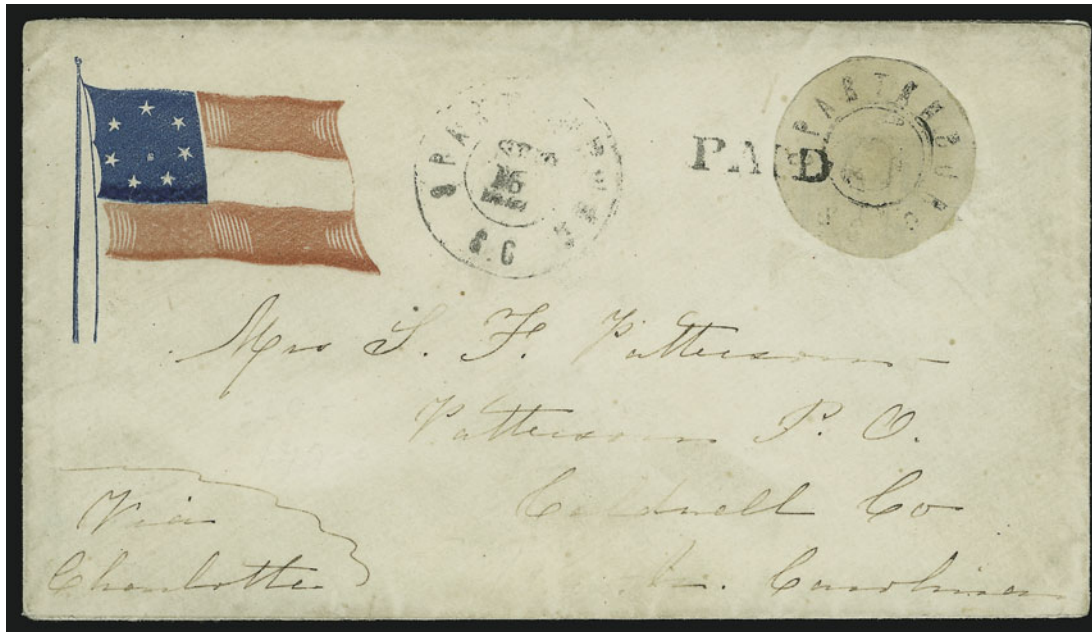 SPARTANBURG
S.C
PAID
SPARTANBURG
Mrs S. F. Patterson
Patterson P. O.
Caldwell Co
N. Carolina
Via
Charlotte